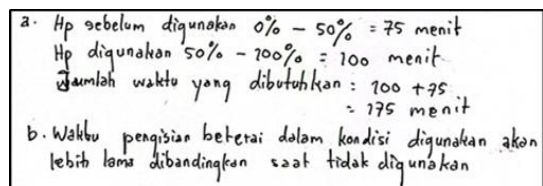 a. Hp sebelum digunakan 0% - 50% = 75 menit
Hp digunakan 50% - 100% = 100 menit
Jumlah waktu yang dibutuhkan : 100 + 75
= 175 menit
b. Waktu pengisian beterai dalam kondisi digunakan akan
lebih lama dibandingkan saat tidak digunakan